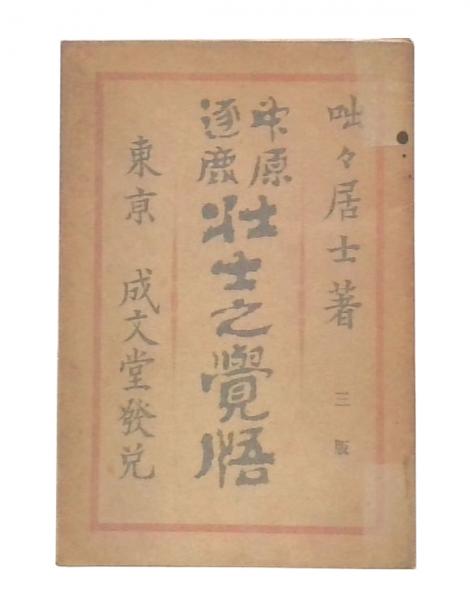 咄々居士著 三版
中原
逐鹿
壮士之覺悟
東京 成文堂發兌